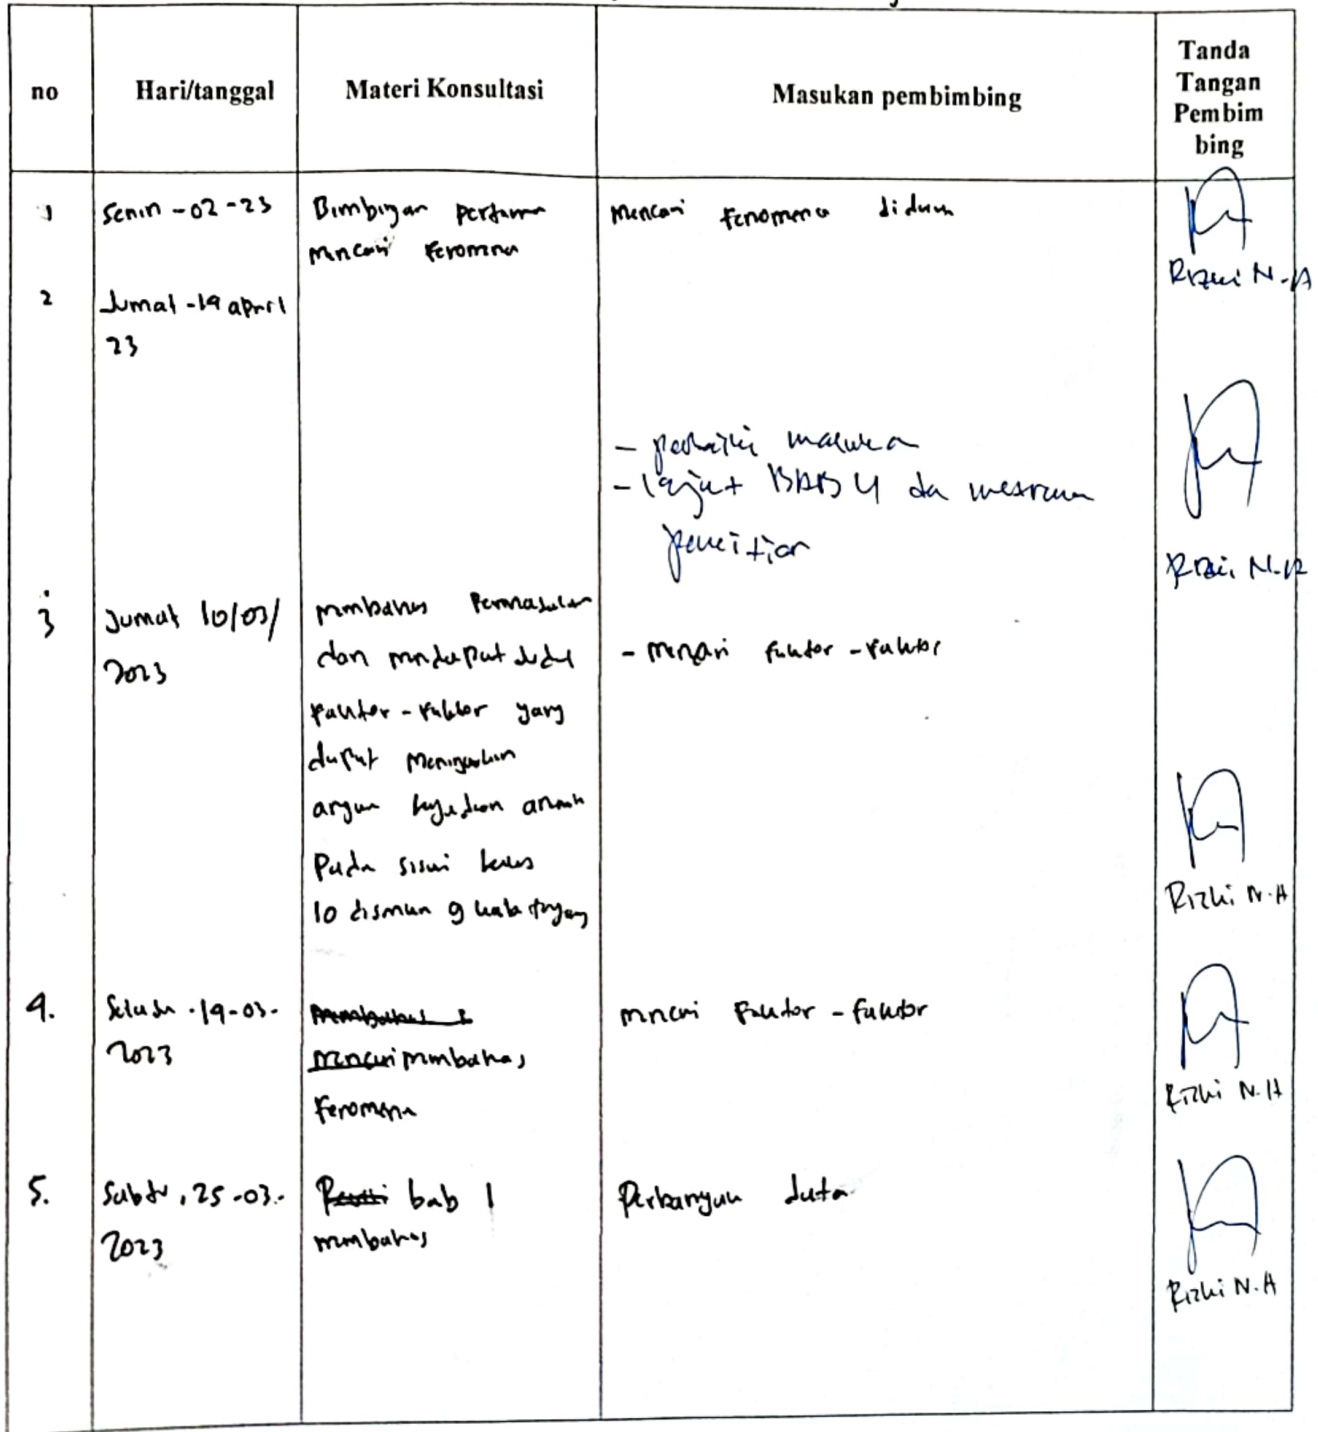 no
Hari/tanggal
Materi Konsultasi
Masukan pembimbing
Tanda
Tangan
Pembim
bing
1
Senin -02-23
Bimbingan pertama
mencari fenomena
mencari fenomena
Rizki N.A
2
Jumat -19 april
23
- perbaiki
- lanjut BAB 4 da
penelitian
Rizki N.A
3
Jumat 10/03/
2023
membahas Permasalahan
dan mendapat judul
faktor-faktor yang
dapat
pada siswi kelas
10
- mencari faktor-faktor
Rizki N.A
4.
19-03-
2023
membahas
mencari membahas
fenomena
mencari faktor-faktor
Rizki N.A
5.
Sabtu, 25-03-
2023
bab 1
membahas
Perbanyak data
Rizki N.A